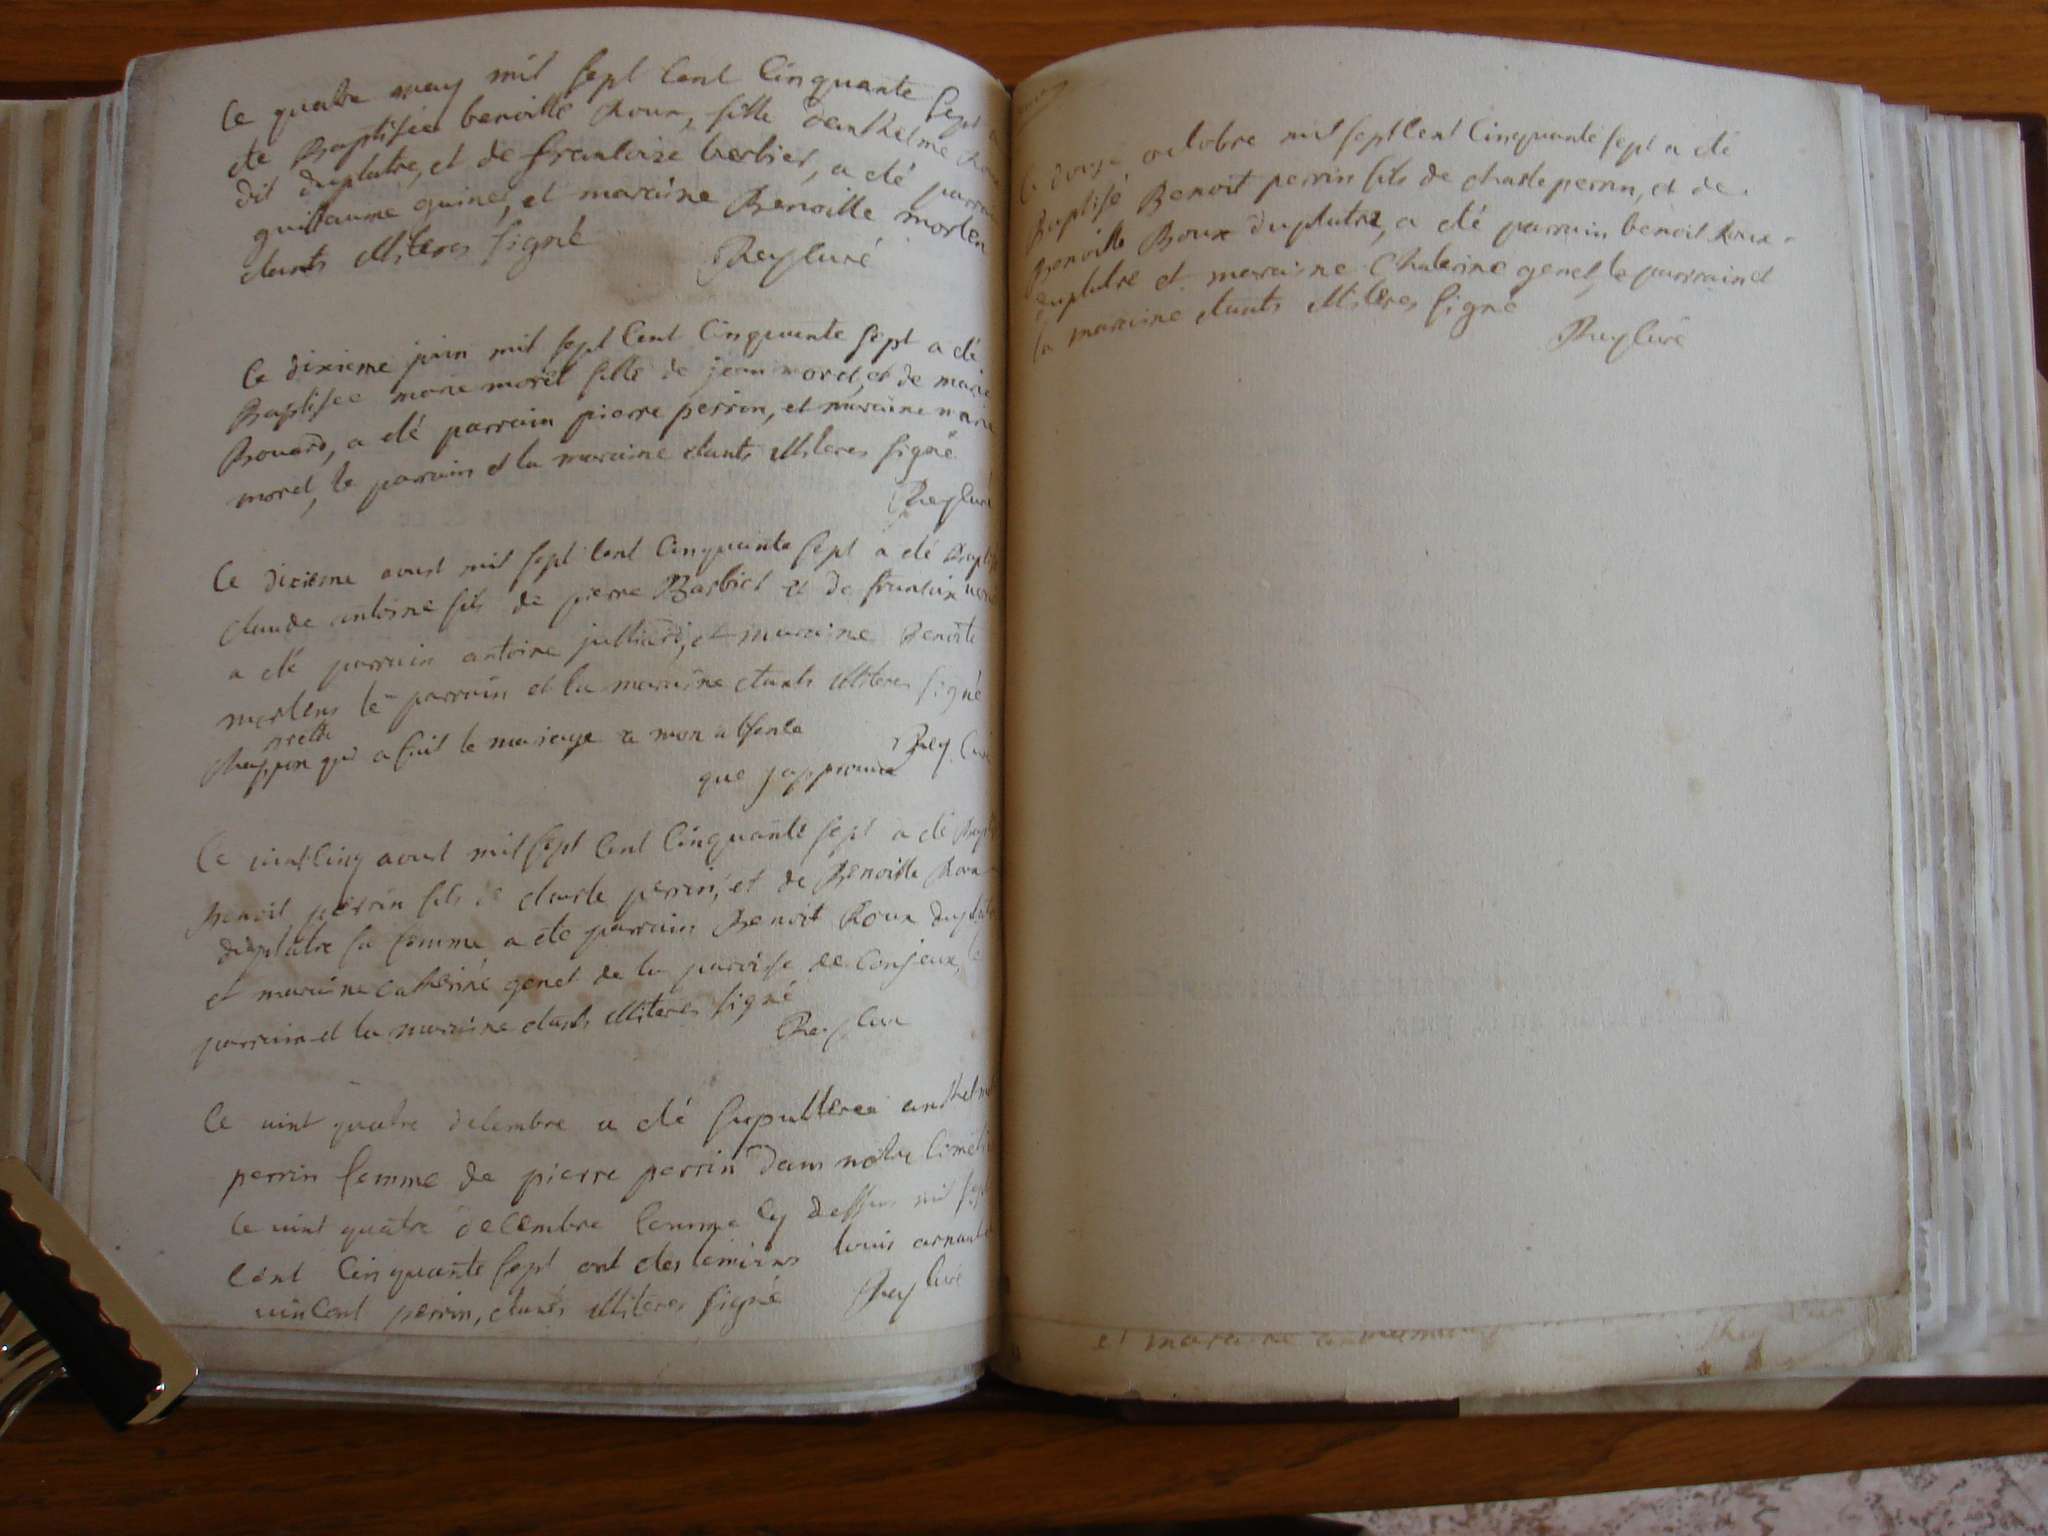 Ce quatre may mil sept cent Cinquante sept a
ete Baptisée benoitte Roux, fille danthelme Roux
dit duplatre, et de francoize berbiet, a eté parrain
guillaume guinet, et maraine Benoitte morten
etants illiteres signé Rey curé
Ce dixieme juin mil sept Cent Cinquante sept a eté
Baptisee marie morel fille de jean morel, et de marie
Bouard, a eté parrain pierre perrin, et maraine marie
morel, le parrain et la maraine etants illiteres signé
Rey curé
Ce dixieme aoust mil sept Cent Cinquante sept a eté
claude antoine fils de pierre Barbiet et de
a eté parrain antoine julliard, et maraine Benoite
mortens le parrain et la maraine etants illiteres signé
qui a fait le mariage a mon absence Rey Curé
que japprouve
Ce vintcinq aoust mil sept Cent Cinquante sept a eté
Benoit perrin fils de claude perrin, et de Benoitte Roux
duplatre sa femme a ete parrain Benoit Roux duplatre
et maraine catherine genet de la paroisse de Conjeux, le
parrain et la maraine etants illiteres signé
Rey cure
Ce vint quatre decembre a eté sepulteree anthelme
perrin femme de pierre perrin dans notre
le vint quatre decembre Comme Cy dessus mil sept
Cent Cinquante sept ont etes temoins louis
vincent perrin, etants illiteres signé Rey Curé
Ce douze octobre mil sept Cent Cinquante sept a eté
Baptisé Benoit perrin fils de charle perrin, et de
Benoitte Roux duplatre, a eté parrain benoit Roux
duplatre et maraine Chaterine genet, le parrain et
la maraine etants illiteres signé
Rey Curé
et maraine
Rey